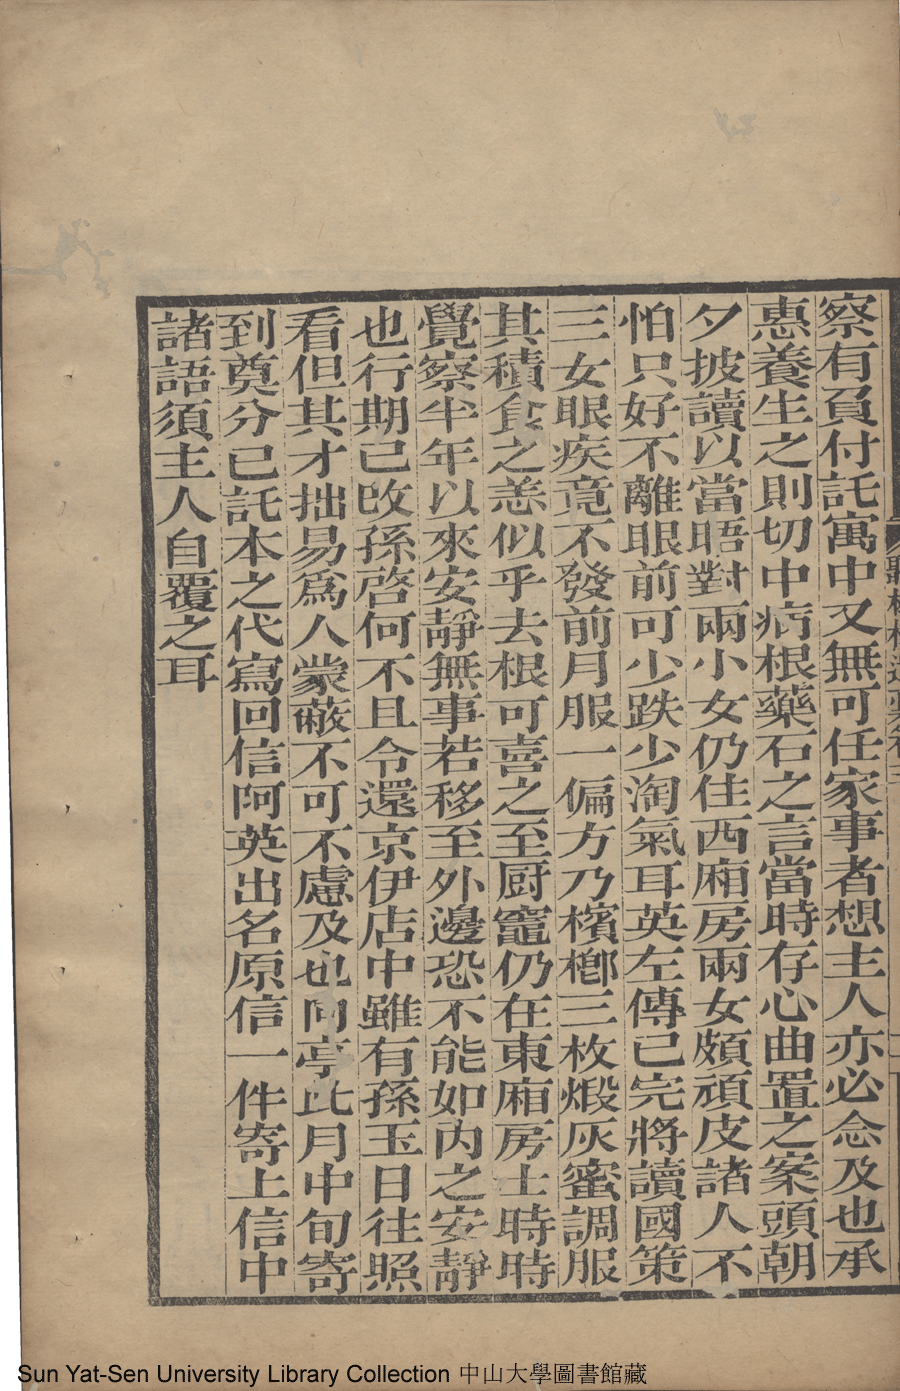 察有負付託寓中又無可任家事者想主人亦必念及也承
惠養生之則切中病根藥石之言當時存心曲置之案頭朝
夕披讀以當晤對兩小女仍住西廂房兩女頗頑皮諸人不
怕只好不離眼前可少跌少淘氣耳英左傳已完將讀國策
三女眼疾竟不發前月服一偏方乃檳榔三枚煅灰蜜調服
其積食之恙似乎去根可喜之至厨竈仍在東廂房土時時
覺察半年以來安靜無事若移至外邊恐不能如內之安靜
也行期已改孫啓何不且令還京伊店中雖有孫玉日往照
看但其才拙易爲人蒙蔽不可不慮及也向亭此月中旬寄
到奠分已託本之代寫回信阿英出名原信一件寄上信中
諸語須主人自覆之耳
Sun Yat-Sen University Library Collection 中山大學圖書館藏